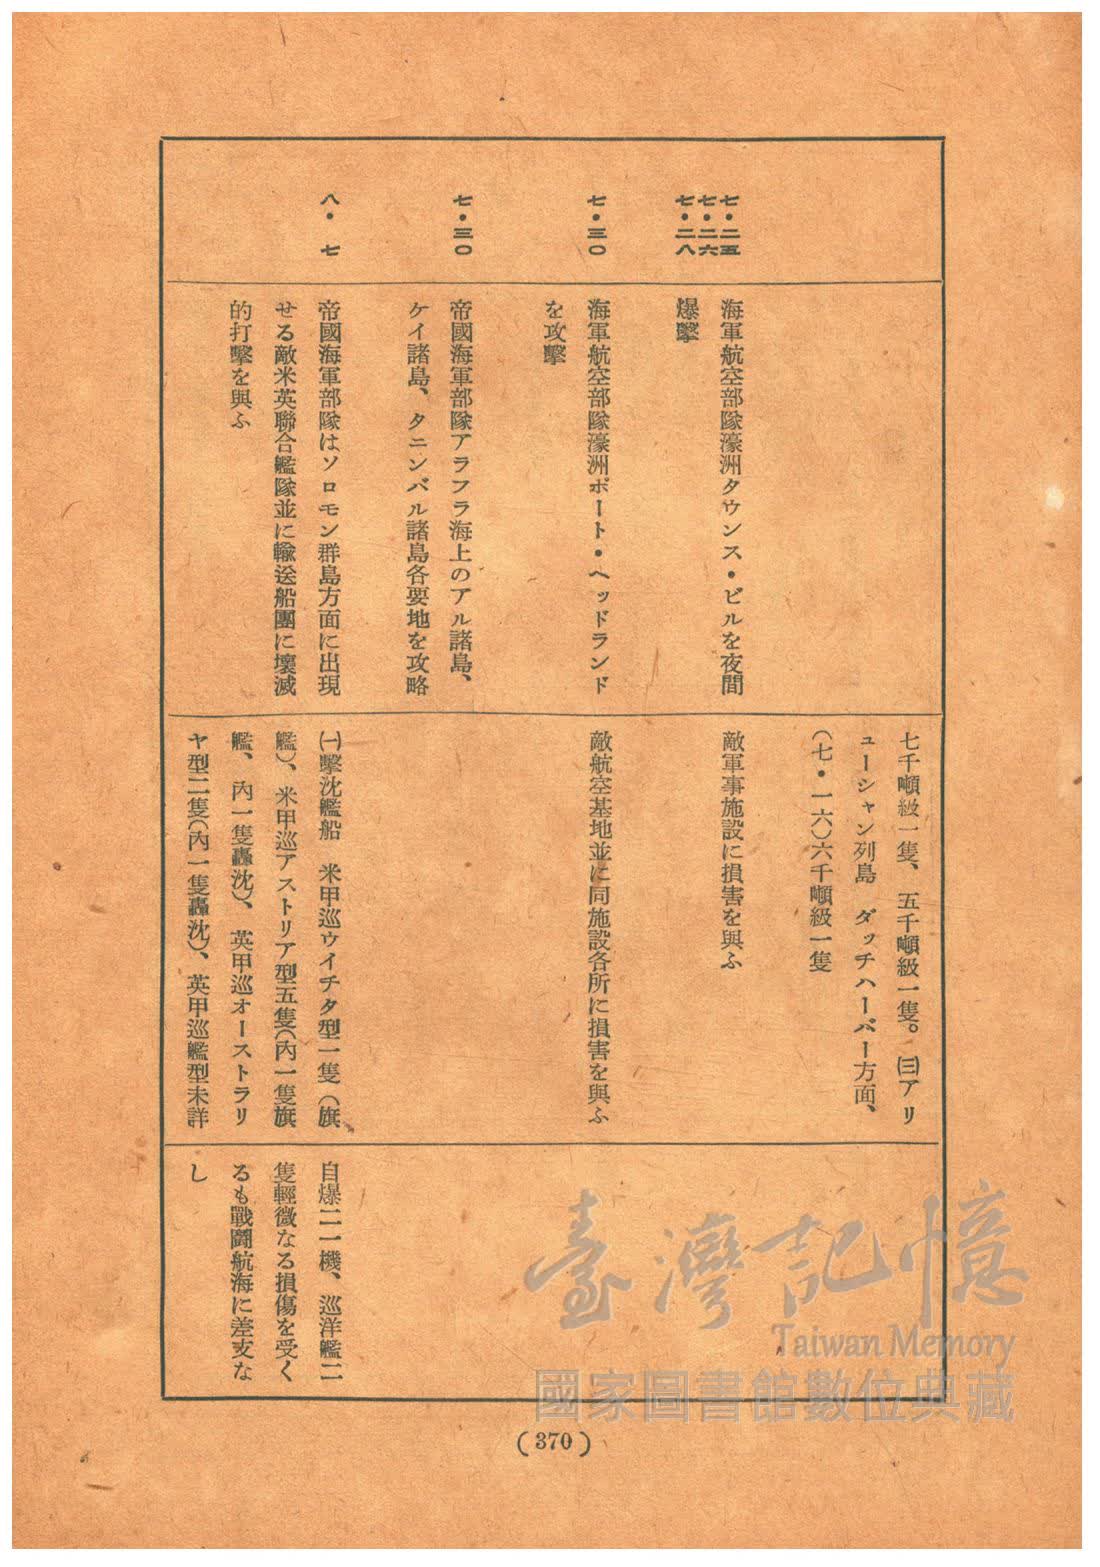 七千噸級一隻、五千噸級一隻。㈢アリ
ューシャン列島　ダッチハーバー方面、
(七・一六)六千噸級一隻
七・二五
七・二六
七・二八
海軍航空部隊濠洲タウンス・ビルを夜間
爆擊
敵軍事施設に損害を與ふ
七・三〇
海軍航空部隊濠洲ポート・ヘッドランド
を攻擊
敵航空基地並に同施設各所に損害を與ふ
七・三〇
帝國海軍部隊アラフラ海上のアル諸島、
ケイ諸島、タニンバル諸島各要地を攻略
八・七
帝國海軍部隊はソロモン群島方面に出現
せる敵米英聯合艦隊並に輸送船團に壞滅
的打擊を與ふ
㈠擊沈艦船　米甲巡ウイチタ型一隻(旗
艦)、米甲巡アストリア型五隻(內一隻旗
艦、內一隻轟沈)、英甲巡オーストラリ
ヤ型二隻(內一隻轟沈)、英甲巡艦型未詳
自爆二一機、巡洋艦二
隻輕微なる損傷を受く
るも戰鬪航海に差支な
し
(370)
臺灣記憶
Taiwan Memory
國家圖書館數位典藏